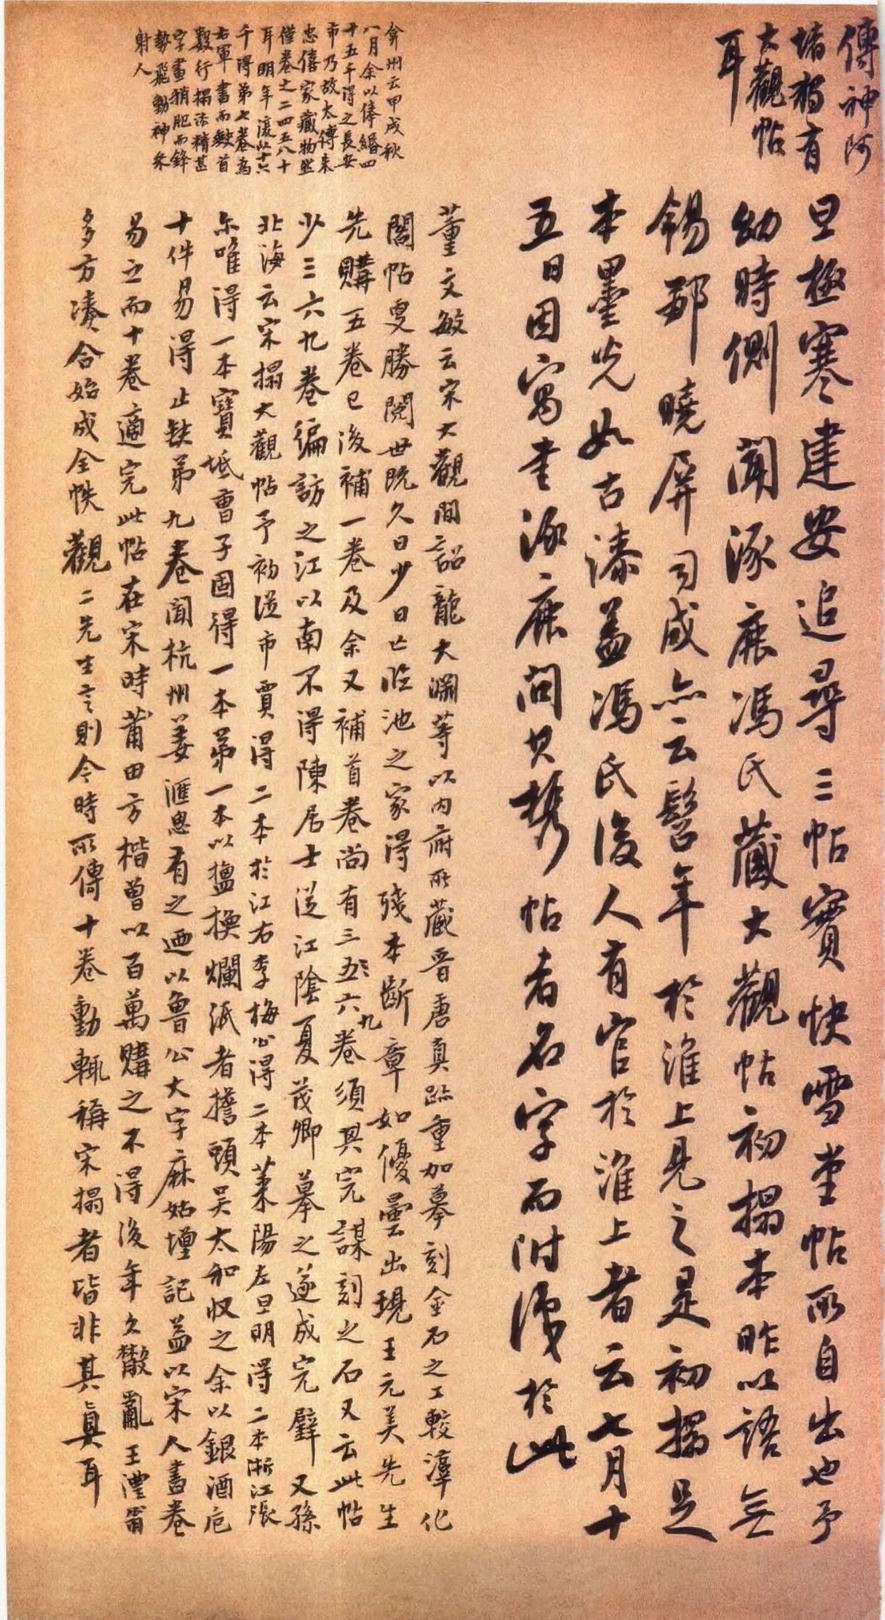 傳神阿
堵猶有
大觀帖
耳
旦極寒建安追尋三帖實快雪堂帖所自出也予
幼時側聞涿鹿馮氏藏大觀帖初搨本昨以語無
錫鄒曉屏司成亦云髫年於淮上見之是初搨足
本墨光如古漆蓋馮氏後人有官於淮上者云七月十
五日因寓書涿鹿問其攜帖者名字而附識於此
弇州云甲戌秋
八月余以俸緡四
十五千得之長安
市乃故太傅朱
忠僖家藏物然
僅卷之二四五八十
耳明年復以十六
千得第七卷為
右軍書而缺首
數行搨法精甚
字畫稍肥而鋒
勢飛動神采
射人
董文敏云宋大觀間詔龍大淵等以內府所藏晉唐真跡重加摹刻金石之工較淳化
閣帖更勝閱世既久日少日亡臨池之家得殘本斷章如優曇出現王元美先生
先購五卷已後補一卷及余又補首卷尚有三五六九卷須其完謀刻之石又云此帖
少三六九卷徧訪之江以南不得陳居士從江陰夏茂卿摹之遂成完璧又孫
北海云宋搨大觀帖予初從市賈得二本於江右李梅公得二本萊陽左旦明得二本浙江張
尔唯得一本寶坻曹子固得一本第一本以搵換爛紙者擔頭吳太和收之余以銀酒卮
十件易得止缺第九卷聞杭州姜滙思有之迺以魯公大字麻姑壇記益以宋人畫卷
易之而十卷適完此帖在宋時莆田方楷曾以百萬購之不得後年久散亂王澧甯
多方湊合始成全帙觀二先生言則今時所傳十卷動輒稱宋搨者皆非其真耳